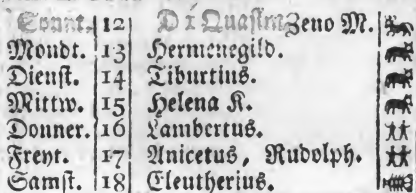 Sonnt. 12 D 1 Quasim Zeno M.
Mondt. 13 Hermenegild.
Dienst. 14 Tiburtius.
Mittw. 15 Helena K.
Donner. 16 Lambertus.
Freyt. 17 Anicetus, Rudolph.
Samst. 18 Eleutherius.